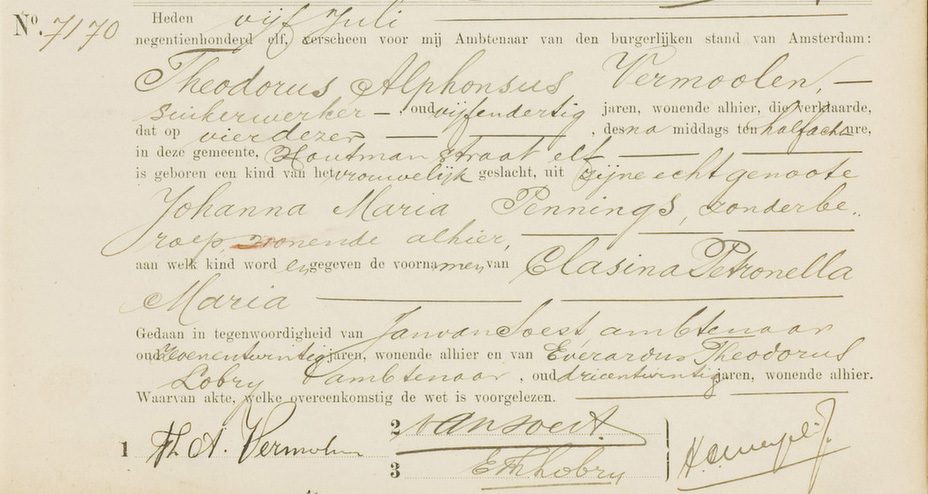 No. 7170
Heden vijf Juli
negentienhonderd elf, verscheen voor mij Ambtenaar van den burgerlijken stand van Amsterdam:
Theodorus Alphonsus Vermoolen, —
suikerwerker —, oud vijfendertig jaren, wonende alhier, die verklaarde,
dat op vier dezer — —, des na middags ten half acht ure,
in deze gemeente, Houtmanstraat elf
is geboren een kind van het vrouwelijk geslacht, uit zijne echtgenoote
Johanna Maria Pennings, zonder be„
roep, wonende alhier,
aan welk kind word en gegeven de voornamen van Clasina Petronella
Maria
Gedaan in tegenwoordigheid van Jan van Soest ambtenaar
oud zevenentwintig jaren, wonende alhier en van Everardus Theodorus
Lobry ambtenaar, oud drieentwintig jaren, wonende alhier.
Waarvan akte, welke overeenkomstig de wet is voorgelezen.
1 Th. A. Vermoolen
2 van Soest.
3 E Th Lobry